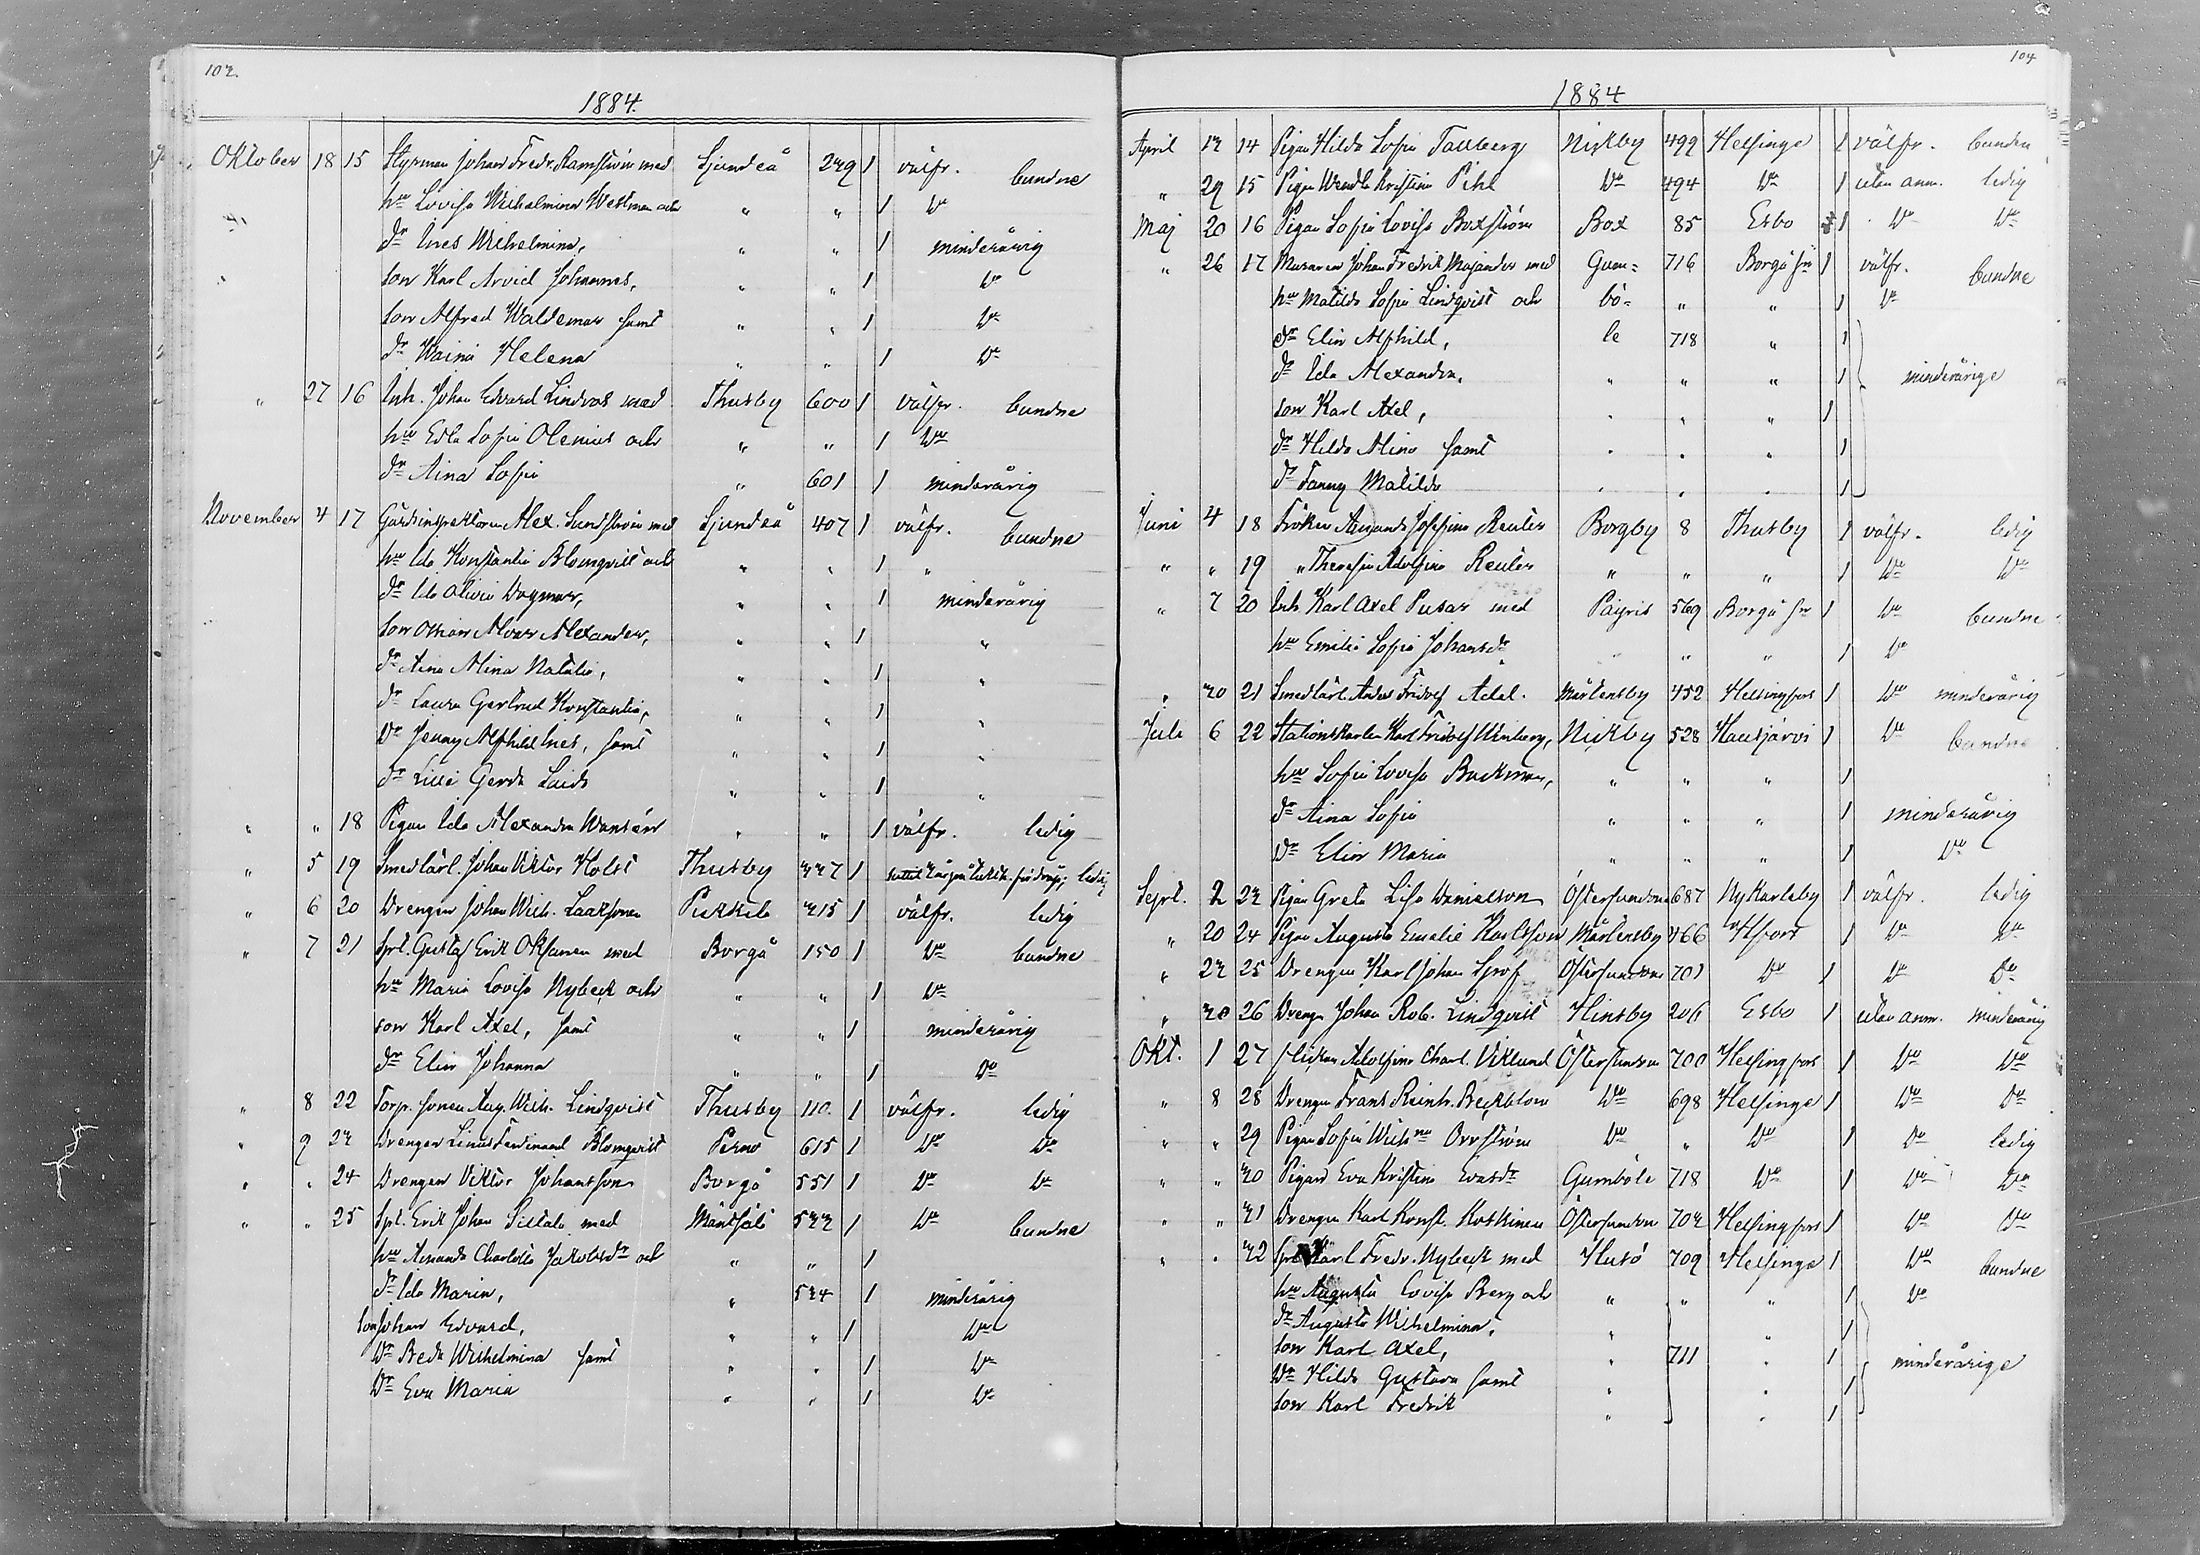 102.
1884.
Oktober 18 15 Styrman Johan Fredr. Ramström med Sjundeå 229 1 välfr. bundne
hu Lovisa Wilhelmina Westman och " " 1 Do
dr Ines Wilhelmina, " " 1 minderårig
son Karl Arvid Johannes, " " 1 Do
son Alfred Waldemar samt " " 1 Do
dr Waino Helena " " 1 Do
" 27 16 Inh. Johan Edvard Lindroos med Thusby 600 1 välfr. bundne
hu Edla Sofia Olenius och " " 1 Do
dr Aina Sofia " 601 1 minderårig
November 4 17 Gårdsinspektoren Alex. Sundström med Sjundeå 407 1 välfr. bundne
hu Ida Konstantia Blomqvist och " " 1 "
dr Ida Olivia Dagmar, " " 1 minderårig
son Alvar Alexander, " " 1 "
dr Aina Alina Natalia, " " 1 "
dr Laura Gertrud Konstantia, " " 1 "
Dr Jenny Alfhild Ines, samt " " 1 "
dr Lilli Gerda " " 1 "
" " 18 Pigan Ida Alexandra Wansén " " 1 välfr. ledig
" 5 19 Smedlärl. Johan Viktor Holst Thusby 227 1 ledig
" 6 20 Drengen Johan Wilh. Laaksonen Pukkila 215 1 välfr. ledig
" 7 21 Spt. Gustaf Erik Oksanen med Borgå 150 1 Do bundne
hu Maria Lovisa Nybeck och " " 1 Do
son Karl Axel, samt " " 1 minderårig
dr Elin Johanna " " 1 Do
" 8 22 Torp. sonen Aug. Wilh. Lindqvist Thusby 110. 1 välfr. ledig
" 9 23 Drengen Linus Ferdinand Blomqvist Perno 615 1 Do Do
" " 24 Drengen Viktor Johansson Borgå 551 1 Do Do
" " 25 Spt. Erik Johan Sillala med Mäntsälä 533 1 Do bundne
hu Amanda Charlotta Jakobsdr och " " 1
dr Ida Maria, " 534 1 minderårig
son Johan Edvard, " " 1 Do
Dr Beda Wilhelmina samt " " 1 Do
Dr Eva Maria " " 1 Do
104
1884
April 12 14 Pigan Hilda Sofia Tallberg Nickby 492 Helsinge 1 välfr. bunden
" 29 15 Pigan Wendla Kristina Pihl Do 494 Do 1 utan anm. ledig
Maj 20 16 Pigan Sofia Lovisa Boxström Box 85 Esbo 1 Do Do
" 26 17 Muraren Johan Fredrik Majander med Gum= 716 Borgå sn 1 välfr. bundne
hu Matilda Sofia Lindqvist och bö= " " 1 Do
dr Elin Alfhild, le 718 " 1
dr Ida Alexandra, " " " 1 minderårige
son Karl Axel, " " " 1
dr Hilda Alina samt " " " 1
dr Fanny Matilda " " " 1
Juni 4 18 Fröken Amanda Josefina Reuter Borgby 8 Thusby 1 välfr. ledig
" " 19 " Theresia Adolfina Reuter " " " 1 Do Do
" 7 20 Inh. Karl Axel Pusar med Paipis 569 Borgå sn 1 Do bundne
hu Emilia Sofia Johansdr " " " 1 Do
" 20 21 Smedlärl. Anders Fridolf Adel. Mårtensby 452 Helsingfors 1 Do minderårig
Juli 6 22 Stationskarlen Karl Fridolf Nickby 528 Hausjärvi 1 Do bundne
hu Sofia Lovisa Backman, " " " 1
dr Aina Sofia " " " 1 minderårig
Dr Elin Maria " " " 1 Do
Sept. 2 23 Pigan Greta Lisa Danielson Östersundom 687 Nykarleby 1 välfr. ledig
" 20 24 Pigan Augusta Emelie Karlsson Mårtensby 466 Hfors 1 Do Do
" 23 25 Drengen Karl Johan Östersundom 701 Do 1 Do Do
" 30 26 Dreng. Johan Rob. Lindqvist Hindsby 206 Esbo 1 utan anm. minderårig
Okt. 1 27 flickan Adolfina Charl. Viklund Östersundom 700 Helsingfors 1 Do Do
" 8 28 Drengen Frans Reinh. Beckblom Do 698 Helsinge 1 Do Do
" " 29 Pigan Sofia Wilhna Orrström Do " Do 1 Do ledig
" " 30 Pigan Eva Kristina Evasdr Gumböle 718 Do 1 Do Do
" " 31 Drengen Karl Konst. Koskinen Östersundom 702 Helsingfors 1 Do Do
" " 32 Spt Karl Fredr. Nybeck med Husö 709 Helsinge 1 Do bundne
hu Augusta Lovisa Berg och " " " 1 Do
dr Augusta Wilhelmina, " " 1
son Karl Axel, " 711 " 1 minderårige
Dr Hilda Gustava samt " " 1
son Karl Fredrik " " 1